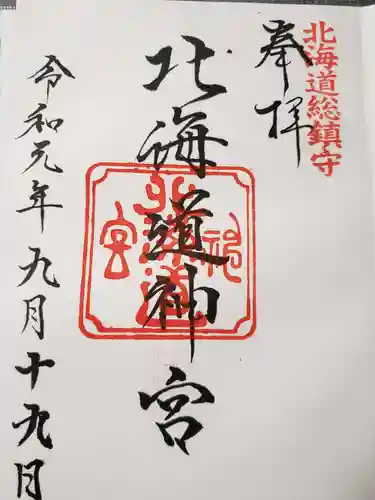 北海道総鎮守
奉拝
北海道神宮
令和元年九月十九月